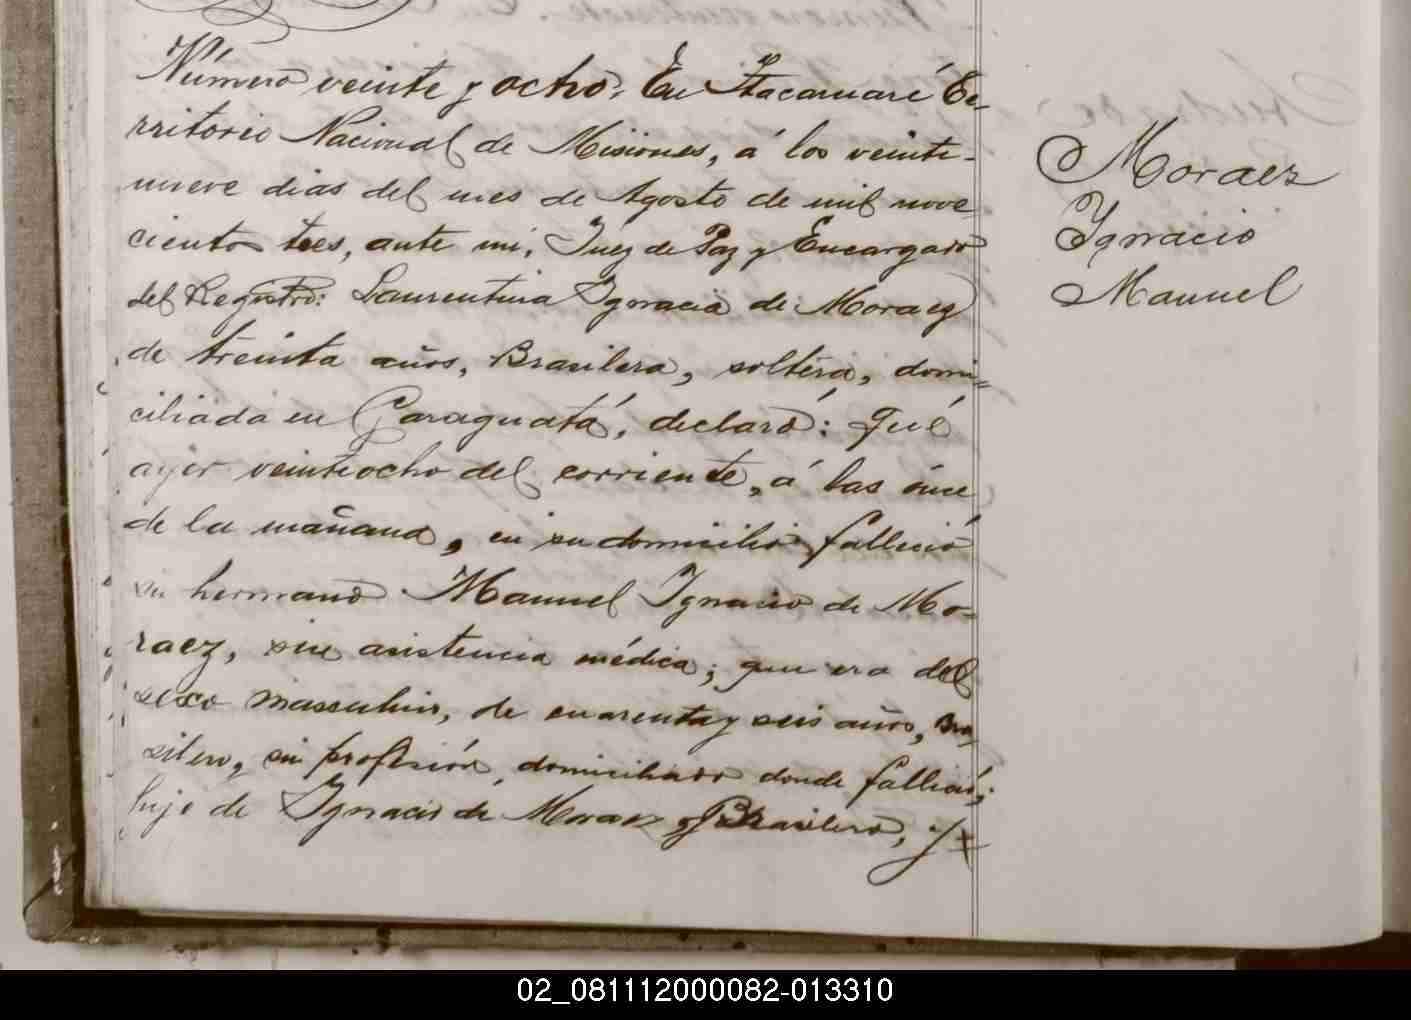 Número veinte y ocho. En Itacaruaré Te-
rritorio Nacional de Misiones, á los veinti-
nueve dias del mes de Agosto de mil nove-
cientos tres, ante mi, Juez de Paz y Encargado
del Registro: Laurentina Ygnacia de Moraez
de treinta años, Brasilera, soltera, domi-
ciliada en Garaguatá, declaró: Qué
ayer veintiocho del corriente, á las once
de la mañana, en su domicilio fallició
su hermano Manuel Ygnacio de Mo-
raez, sin asistencia médica; que era del
sexo masculino, de cuarenta y seis años, Bra-
silero, sin profesión, domiciliado donde fallició;
hijo de Ygnacio de Moraez Brasilero, y
Moraez
Ygnacio
Manuel
02_081112000082-013310